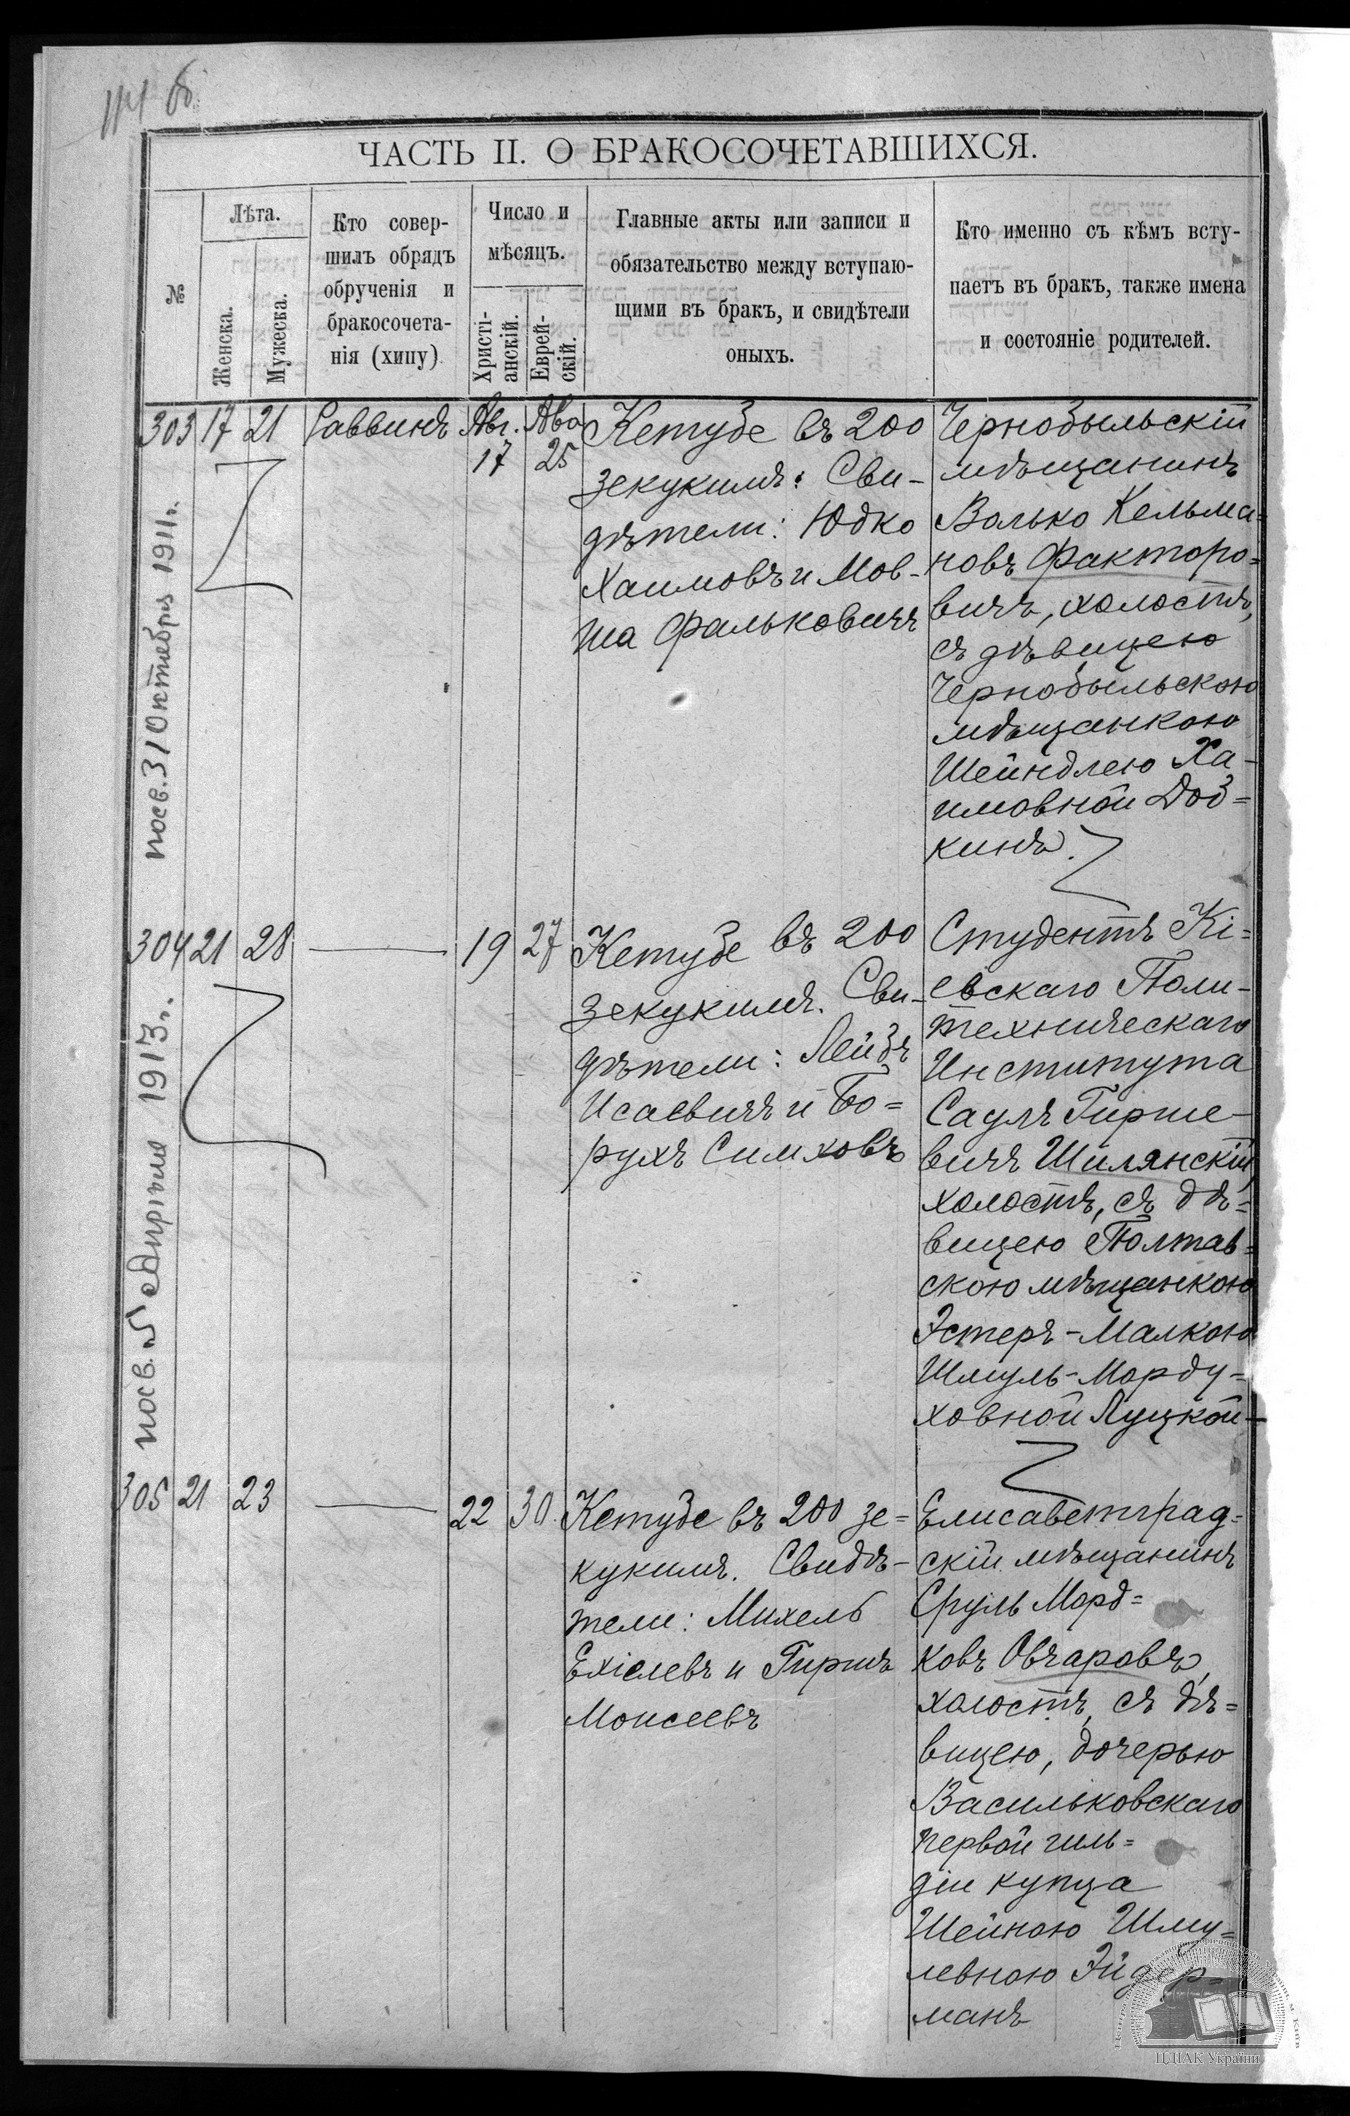 ЧАСТЬ II. О БРАКОСОЧЕТАВШИХСЯ.
№
Лѣта.
Женска.
Мужеска.
Кто совер-
шилъ обрядъ
обрученія и
бракосочета-
нія (хипу)
Число и
мѣсяцъ.
Христі-
анскій.
Еврей-
скій.
Главные акты или записи и
обязательство между вступаю-
щими въ бракъ, и свидѣтели
оныхъ.
Кто именно съ кѣмъ всту-
паетъ въ бракъ, также имена
и состояніе родителей.
303 17 21 Раввинъ Авг. 17 Ава 25
Кетубе въ 200
зекукимъ: Сви-
дѣтели: Юдко
Хаимовъ и Мов-
ша Фальковичъ
Чернобыльскій
мѣщанинъ
Волько Кельма=
новъ Факторо=
вичъ, холостъ,
съ дѣвицею
Чернобыльскою
мѣщанкою
Шейндлею Ха-
имовной Доб=
кинъ.
посв. 31 Октября 1911 г.
304 21 28 — 19 27
Кетубе въ 200
зекукимъ. Сви-
дѣтели: Лейбъ
Исаевичъ и Бо=
рухъ Симховъ
Студентъ Кі=
евскаго Поли-
техническаго
Института
Саулъ Гирше-
вичъ Шилянскій,
холостъ, съ дѣ=
вицею Полтав=
скою мѣщанкою
Эстеръ-Малкою
Шмуль-Морду-
ховной Луцкой-
посв. 5 Апрѣля 1913 г.
305 21 23 — 22 30
Кетубе въ 200 зе=
кукимъ. Свидѣ-
тели: Михель
Ехіелевъ и Гиршъ
Моисеевъ
Елисаветград=
скій мѣщанинъ
Сруль Морд=
ковъ Овчаровъ,
холостъ, съ дѣ=
вицею, дочерью
Васильковскаго
первой гиль=
діи купца
Шейною Шму=
левною Эйдер-
манъ
ЦДІАК України